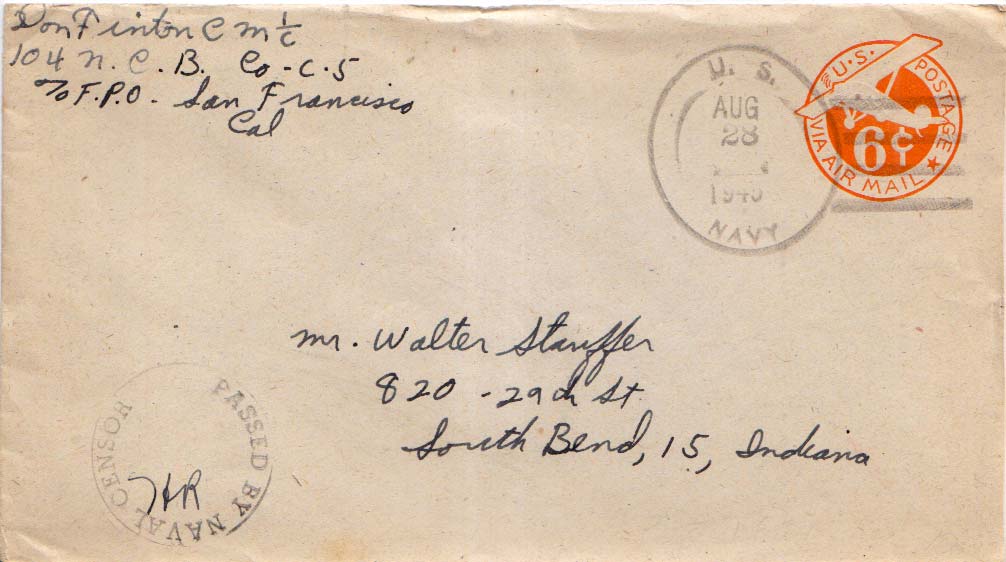 Don Finton C M 1/c
104 N.C.B. Co-C-5
% F.P.O. - San Francisco
Cal
U. S.
AUG
28
1945
NAVY
U.S. POSTAGE
6¢
VIA AIR MAIL
Mr. Walter Stauffer
820 - 29th St.
South Bend, 15, Indiana
PASSED BY NAVAL CENSOR
HR